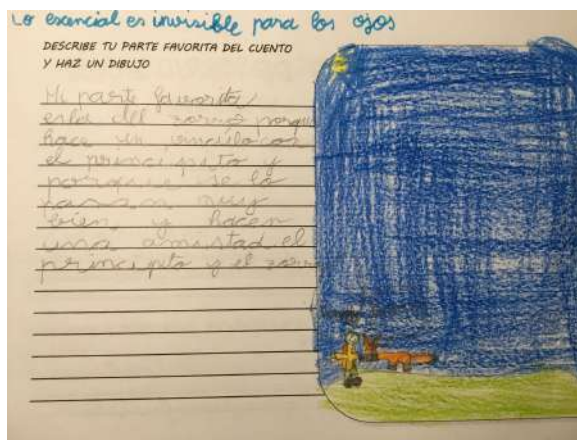 Lo esencial es invisible para los ojos
DESCRIBE TU PARTE FAVORITA DEL CUENTO
Y HAZ UN DIBUJO
Mi parte favorita
es la del zorro porque
hace un vínculo con
el principito y
porque se lo
pasan muy
bien y hacen
una amistad el
principito y el zorro